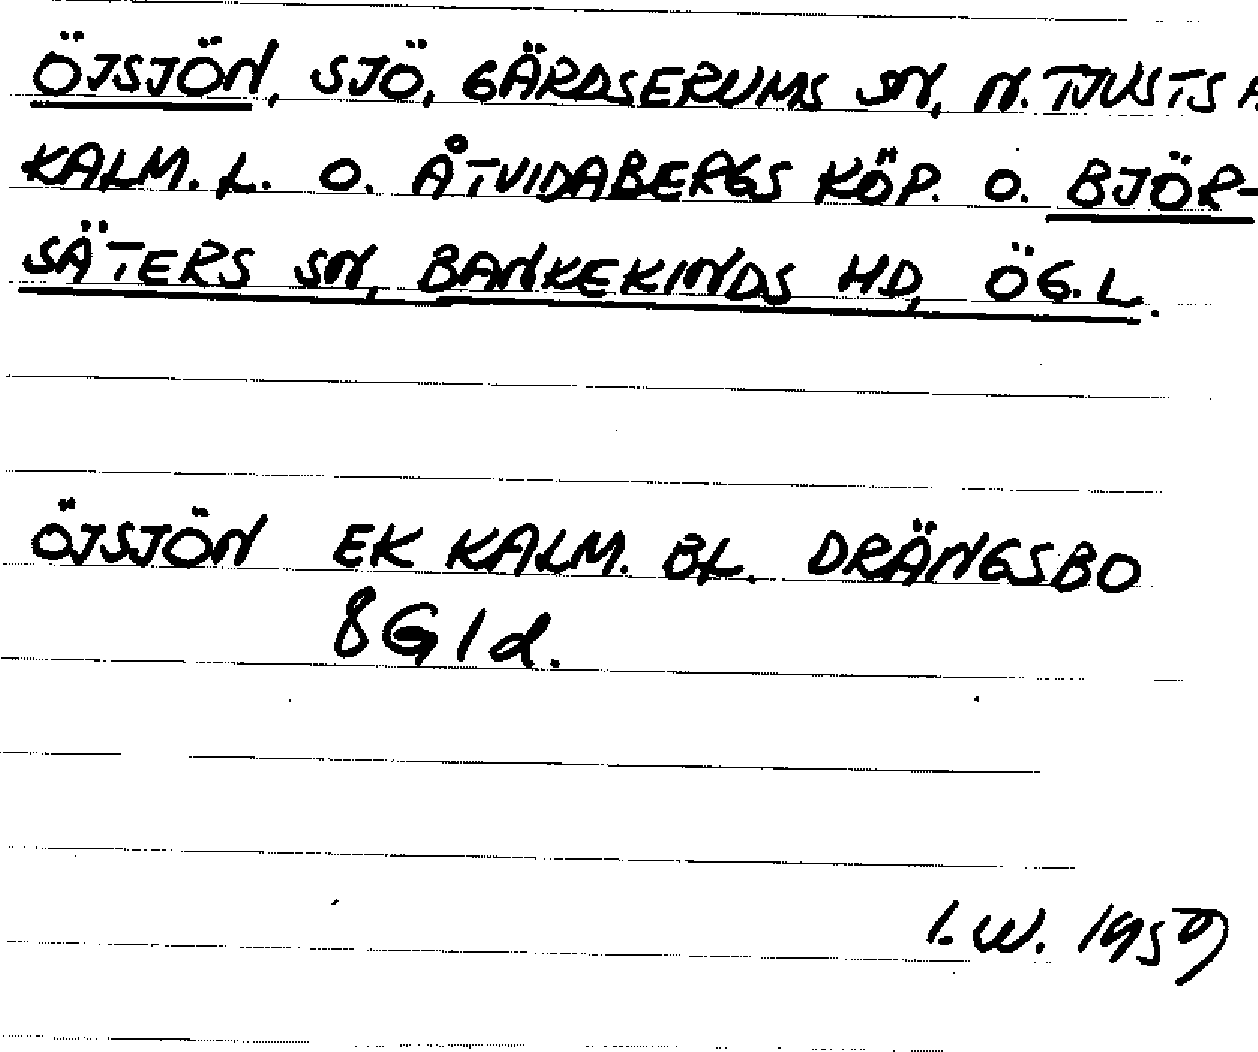 ÖJSJÖN, SJÖ, GÄRDSERUMS SN, N. TJUSTS
KALM. L. O. ÅTVIDABERGS KÖP. O. BJÖR-
SÄTERS SN, BANKEKINDS HD, ÖG. L.
ÖJSJÖN EK KALM. BL. DRÄNGSBO
8G1d.
I.W. 1959